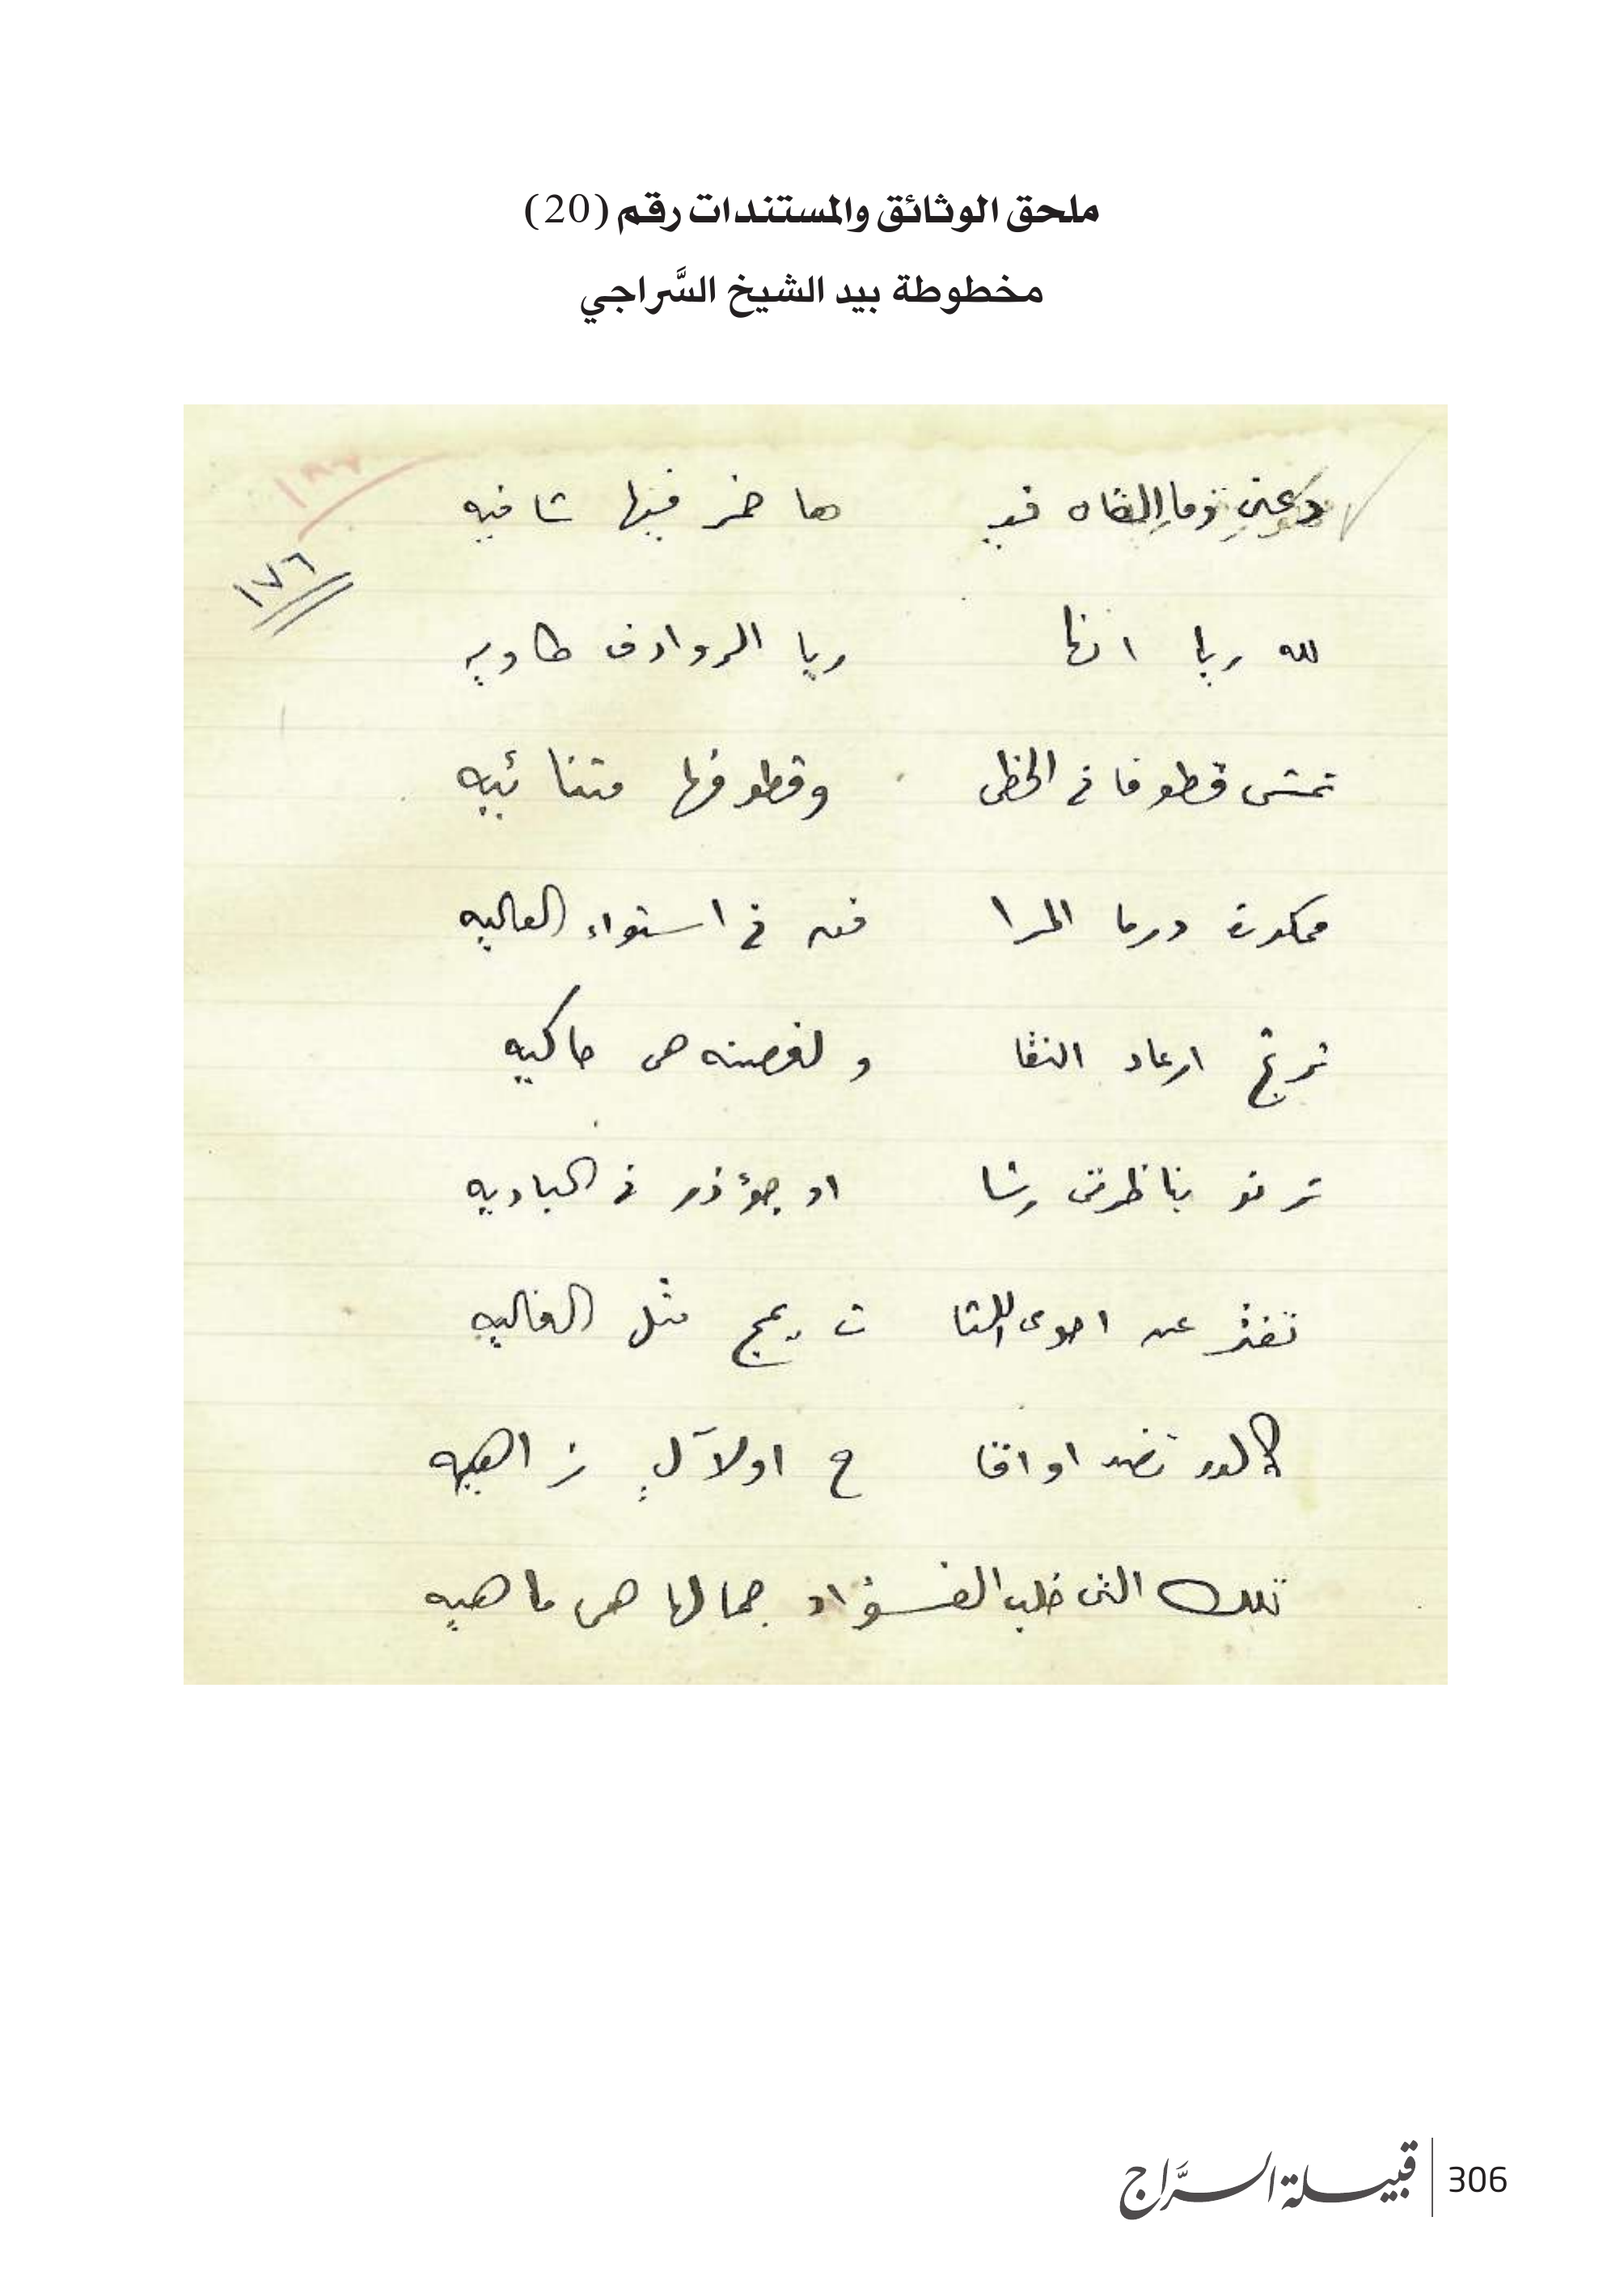 ملحق الوثائق والمستندات رقم (20)
مخطوطة بيد الشيخ السَّراجي
١٨٦
دعني وما القاه فيـ ها خز فيها شافيه
١٧٦
لله ريا انها ريا الروادف طاويه
تمشى قطوفا في الخطى وقطوفها متنائيه
ممكورة درما المرا فق في استواء العاليه
ترتج ارعاد النقا ولغصنه هى حاكيه
ترنو بناظرتى رشا او جؤذر في الباديه
تفتر عن احوى اللثا ت يمج مثل الغاليه
كالدر نضد او اقا ح او لآلٍ زاهيه
تلك التى خلب الفــؤاد جمالها هى ماهيه
306 قبيلة السرَّاج